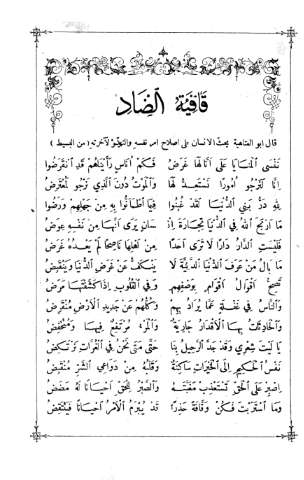 قافية الضاد
قال ابو العتاهية يحث الانسان على اصلاح امر نفسه والتيقظ لآخرته (من البسيط)
نفسي المنايا على أنا لها غرض فكم أناس رأيناهم قد انقرضوا
إنا لنرجو أمورا نستعد لها والموت دون الذي نرجو لمعترض
لله در بني الدنيا لقد غبنوا فيما اطمأنوا به من جهلهم ورضوا
ما أربح الله في الدنيا تجارة إنسان يرى أنها من نفسه عوض
فليست الدار دارا لا ترى أحدا من أهلها ناصحا لم يعده غرض
ما بال من عرف الدنيا الدنية لا ينكف عن غرض الدنيا وينقبض
تصح أقوال أقوام بوصفهم وفي القلوب إذا كشفتها مرض
والناس في غفلة عما يراد بهم وكلهم عن جديد الأرض منقرض
والحادثات بها الأقدار جارية والمرء مرتفع فيها ومنخفض
يا ليت شعري وقد جد الرحيل بنا حتى متى نحن في الغرات نرتكض
نفس الحكيم إلى الخيرات ساكنة وقلبه من دواعي الشر منقبض
اصبر على الحق تستعذب مغبته والصبر للحق أحيانا له مضض
وما استربت فكن وقافة حذرا قد يبرم الأمر أحيانا فينتقض